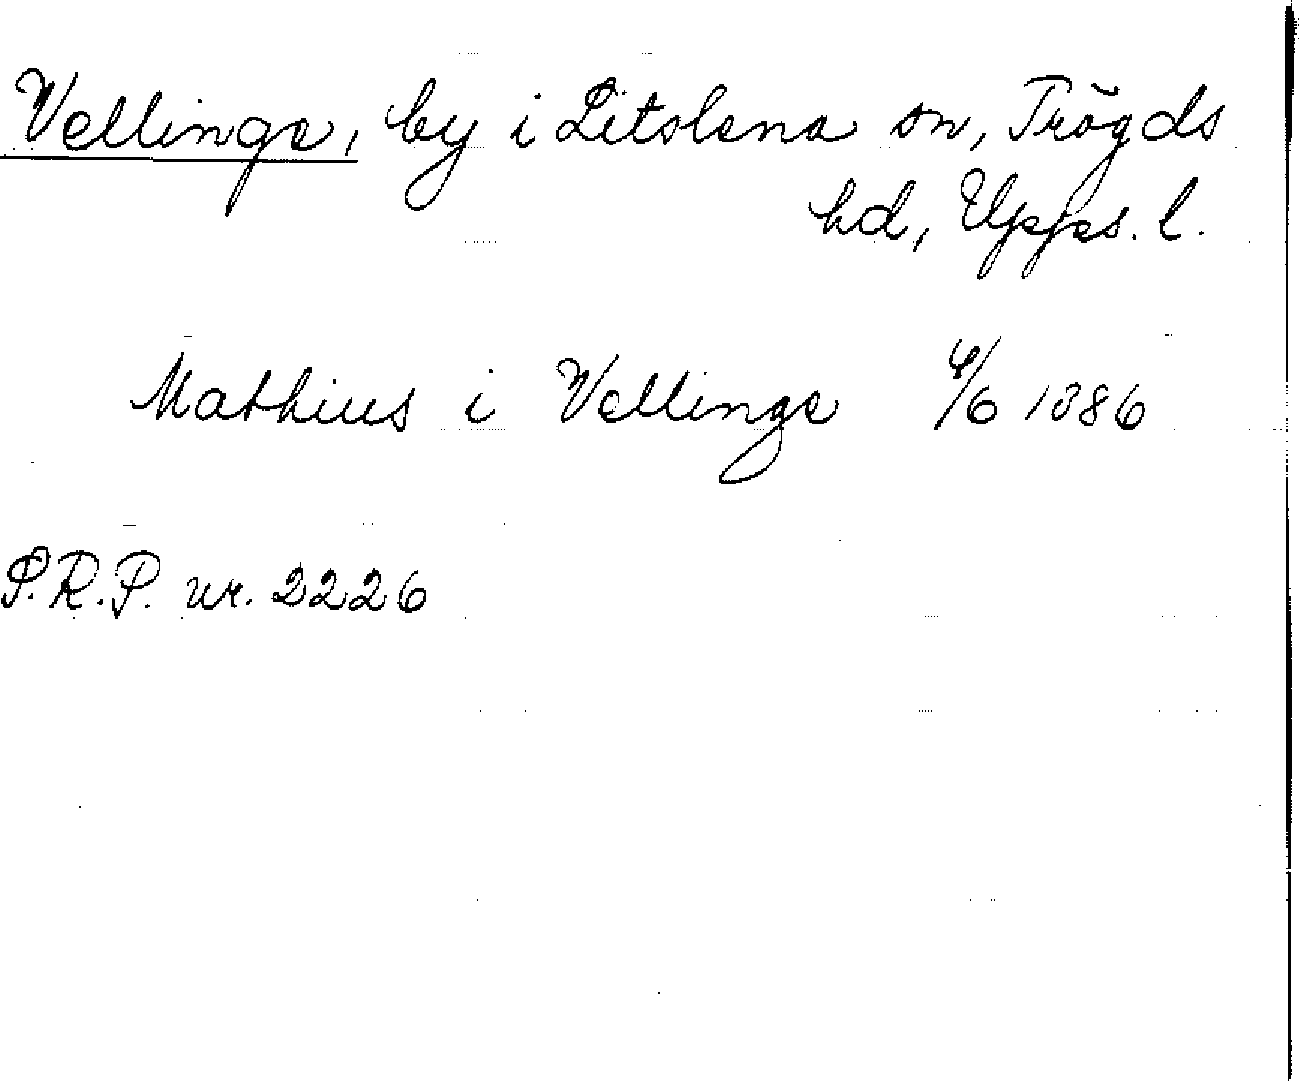 Vellinge, by i Litslena sn, Trögds
hd, Upps. l.
Mathius i Vellinge 4/6 1386
P.R.P. nr. 2226